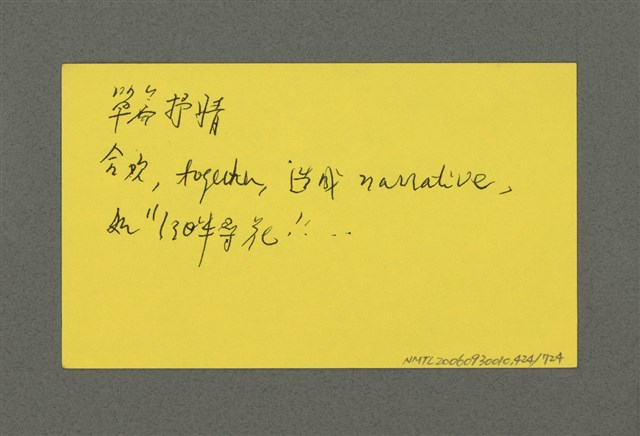 單篇抒情
together, 造成 narrative,
如"江畔尋花"...
NMTL20060930010.424/724